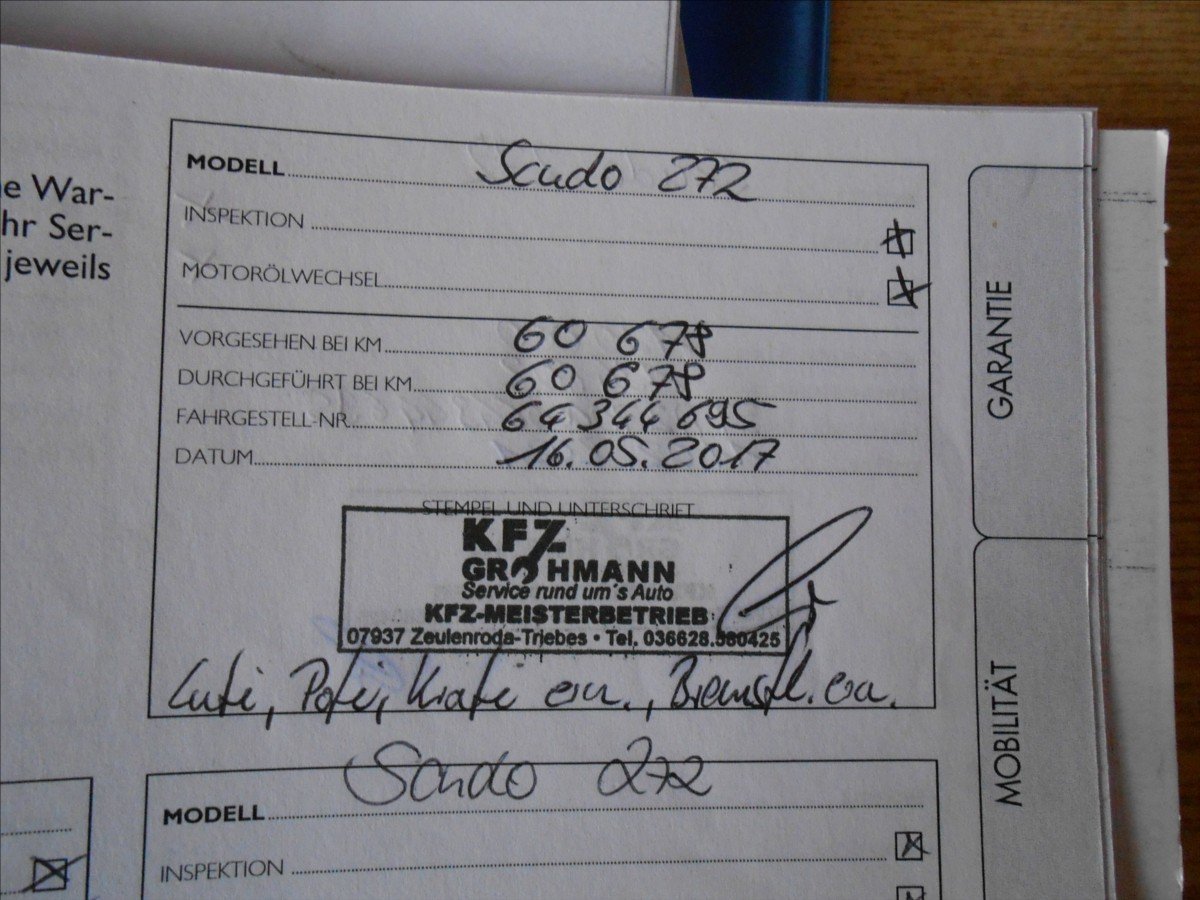 e War-
hr Ser-
jeweils
MODELL Scudo 272
INSPEKTION
MOTORÖLWECHSEL
VORGESEHEN BEI KM 60 678
DURCHGEFÜHRT BEI KM 60 678
FAHRGESTELL-NR. 64344695
DATUM 16.05.2017
STEMPEL UND UNTERSCHRIFT
KFZ
GROHMANN
Service rund um's Auto
KFZ-MEISTERBETRIEB
07937 Zeulenroda-Triebes • Tel. 036628.580425
MODELL Scudo 272
INSPEKTION
GARANTIE
MOBILITÄT